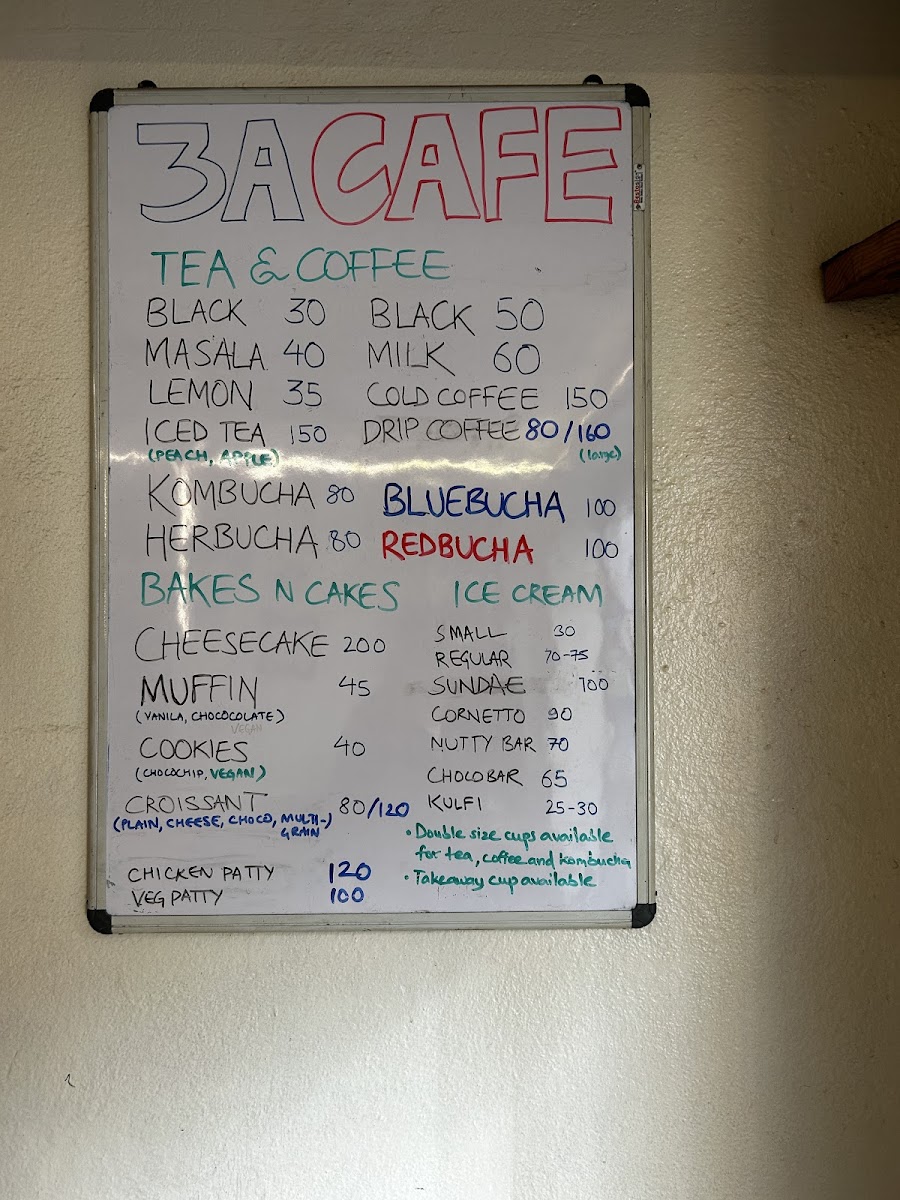 3A CAFE
TEA & COFFEE
BLACK 30 BLACK 50
MASALA 40 MILK 60
LEMON 35 COLD COFFEE 150
ICED TEA 150 DRIP COFFEE 80/160
(PEACH, APPLE) (large)
KOMBUCHA 80 BLUEBUCHA 100
HERBUCHA 80 REDBUCHA 100
BAKES N CAKES
CHEESECAKE 200
MUFFIN 45
(VANILA, CHOCOCOLATE)
VEGAN
COOKIES 40
(CHOCOCHIP, VEGAN)
CROISSANT 80/120
(PLAIN, CHEESE, CHOCO, MULTI-)
GRAIN
CHICKEN PATTY 120
VEG PATTY 100
ICE CREAM
SMALL 30
REGULAR 70-75
SUNDAE 100
CORNETTO 90
NUTTY BAR 70
CHOCOBAR 65
KULFI 25-30
• Double size cups available
for tea, coffee and kombucha
• Takeaway cup available